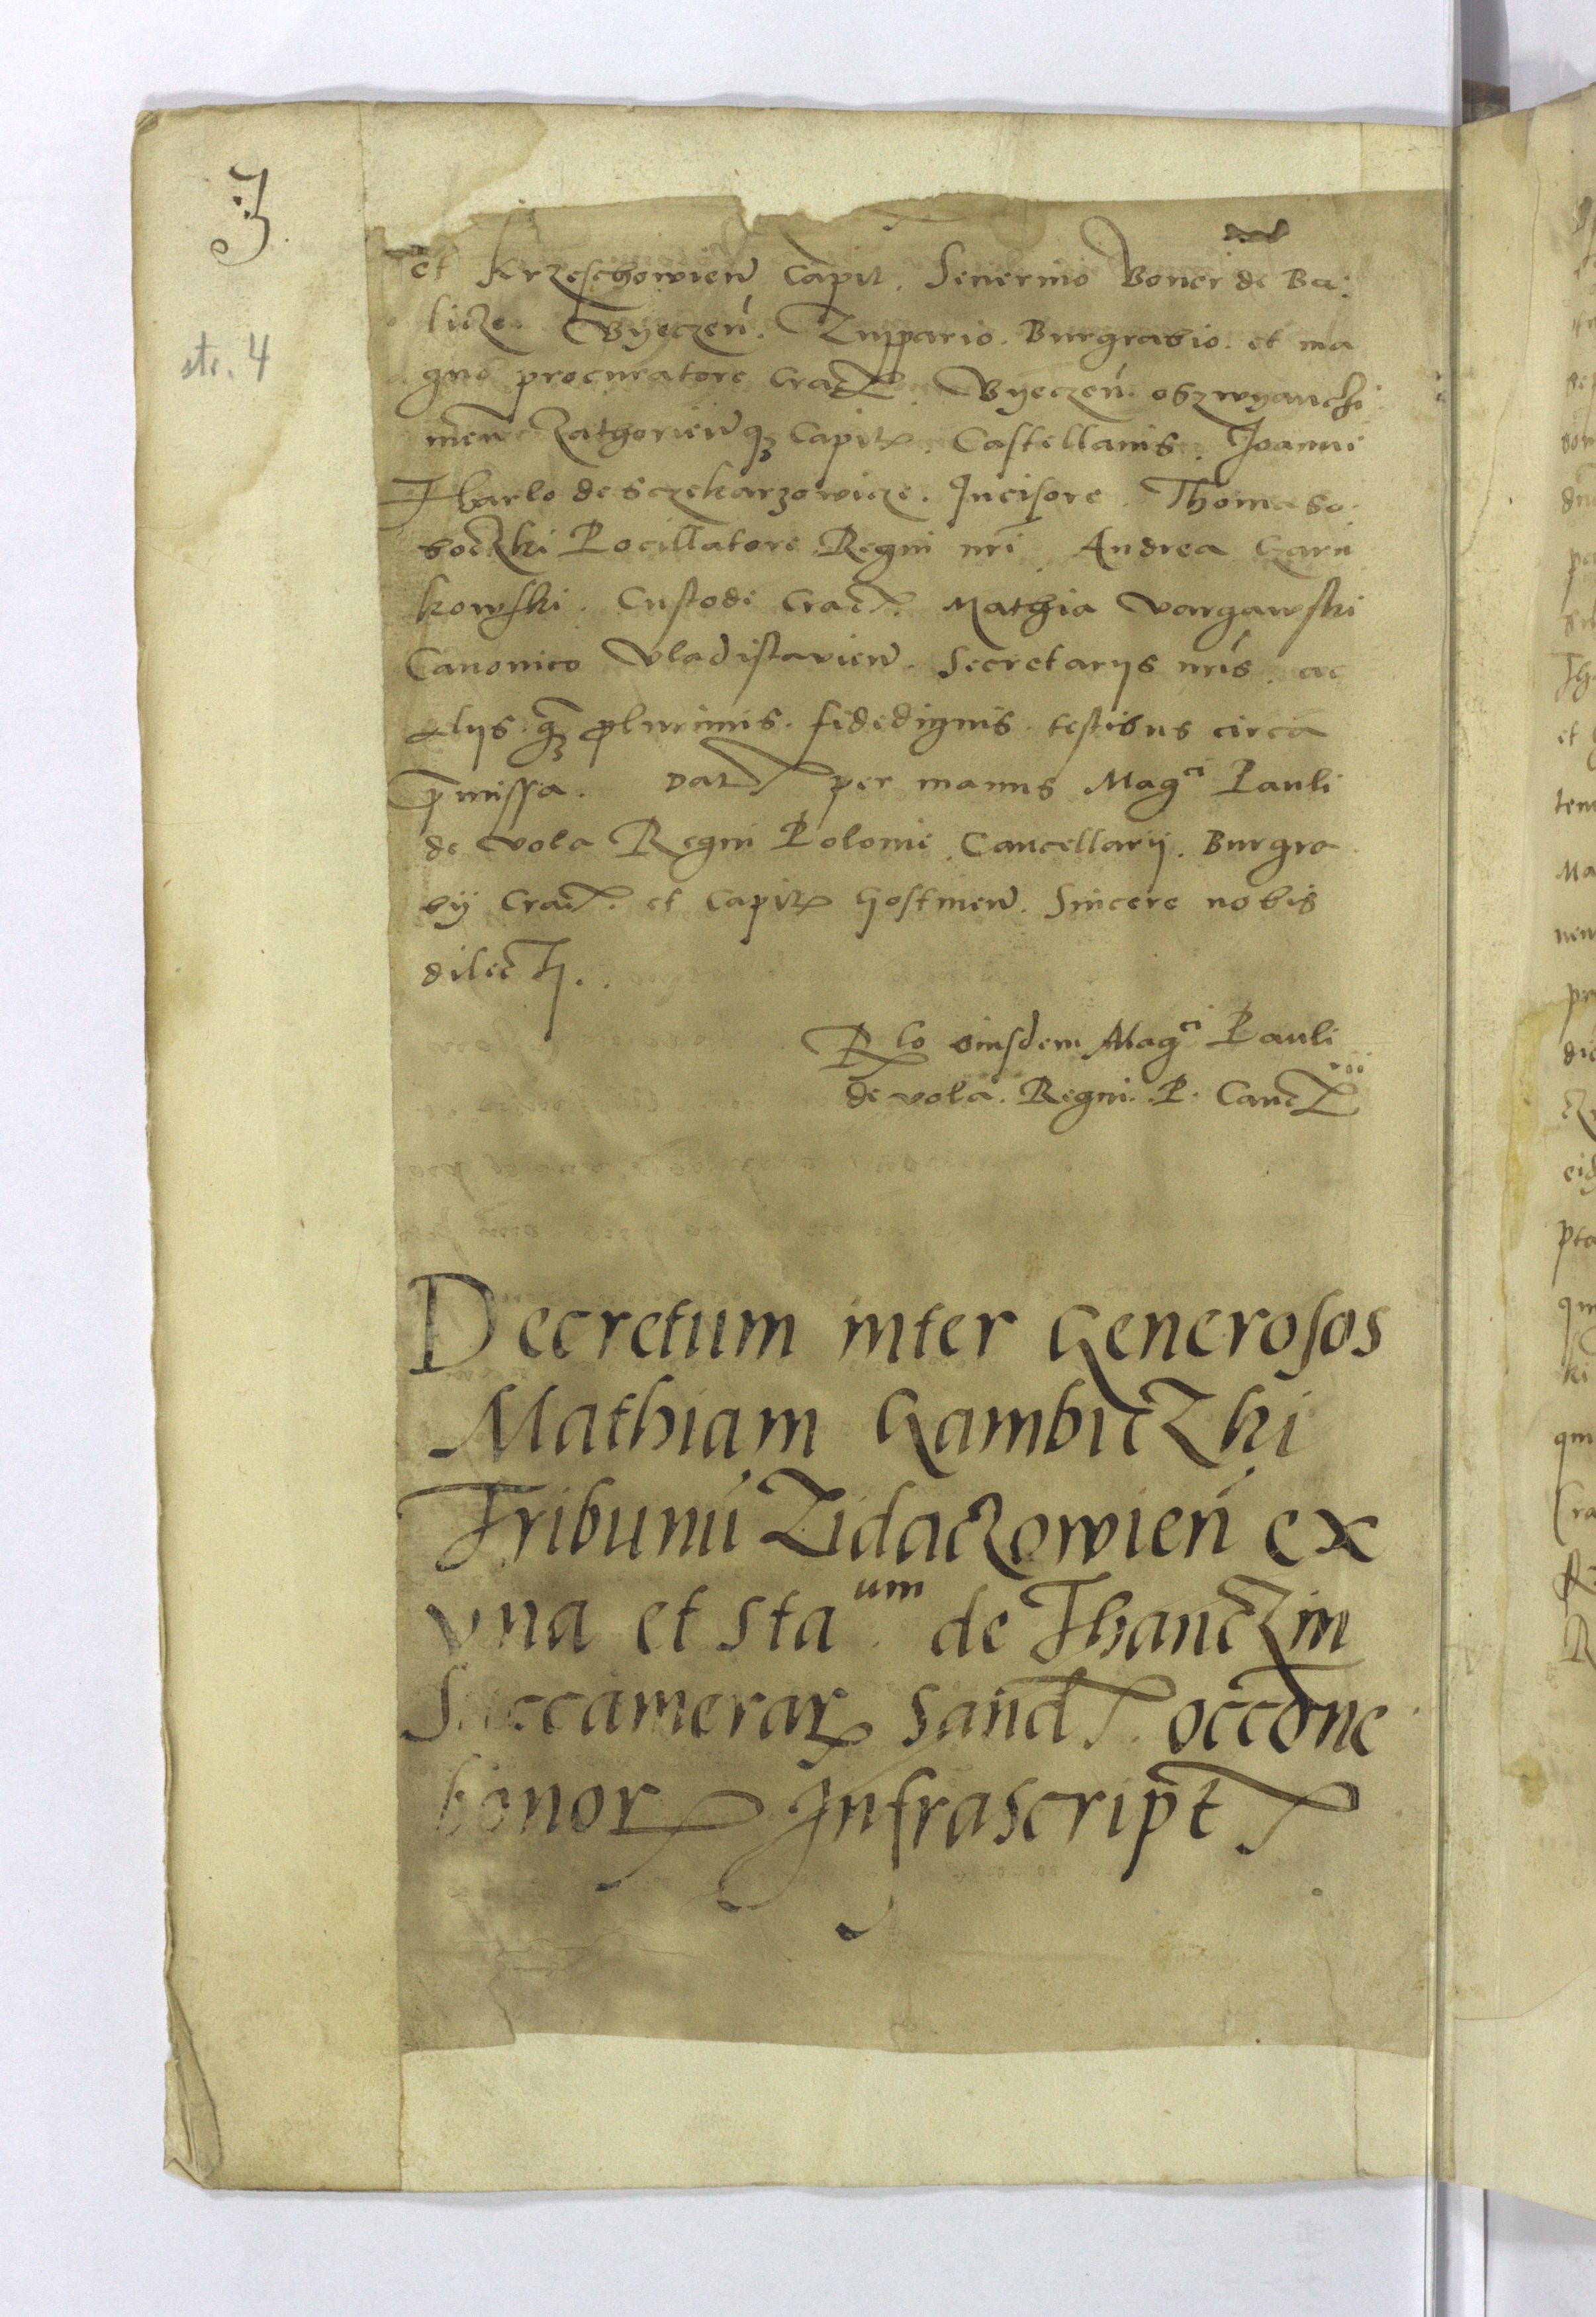 3
str. 4
et Krzeschowien̄ Capit. Seuerino Boner de Ba:
licze Byeczen̄. Zuppario. Burgrabio. et ma
gno procuratore Crac. Byeczen̄. oszwyanczi
men̄ Zathorien̄q3 Capit. Castellanis. Joanne
Tharlo de Sczekarzowicze. Incisore. Thoma So
boczki Pocillatore Regni nri. Andrea Czarn
kowski. Custode Crac. Mathia Vargawski
Canonico Vladislavien̄. Secretarys nris. ac
alys. q3 plurimis. fidedignis. testibus circa
p̄missa. Dat per manus Magci Pauli
de Vola Regni Polonie Cancellarij. Burgra
bij Crac. et Capit Gostinen̄. Sincere nobis
dilecti.
Rlo eiusdem Magci Pauli
de Vola. Regni. P. Canc
Decretum inter Generosos
Mathiam GambiczKi
Tribunū Zidaczowień ex
vna et Staum. de Thanczin
Succamerar Sand. occōne
bonor Infrascript